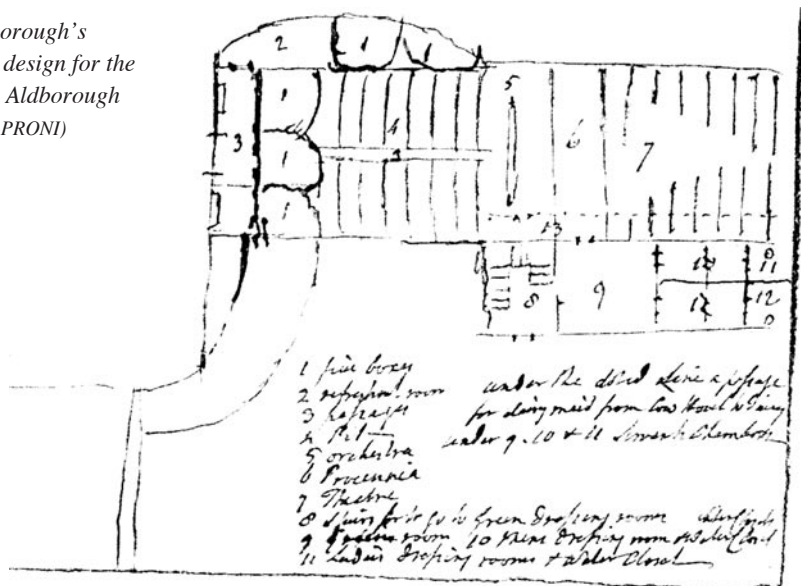 orough's
design for the
Aldborough
PRONI)
2
1
1
1
5
3
4
6
7
1
1
13
8
9
10
11
12
12
1 five boxes
2 refreshmt. room
3 passages
4 Pit
5 orchestra
6 Procennia
7 Theatre
8 Stairs for to go to Green Dressing rooms
9 room 10 Mens Dressing room & Water Closet
11 Ladies Dressing rooms & Water Closet
under the dotted line a passage
for dairy maid from Cow House to Dairy
under 9. 10 & 11 Servants Chambers